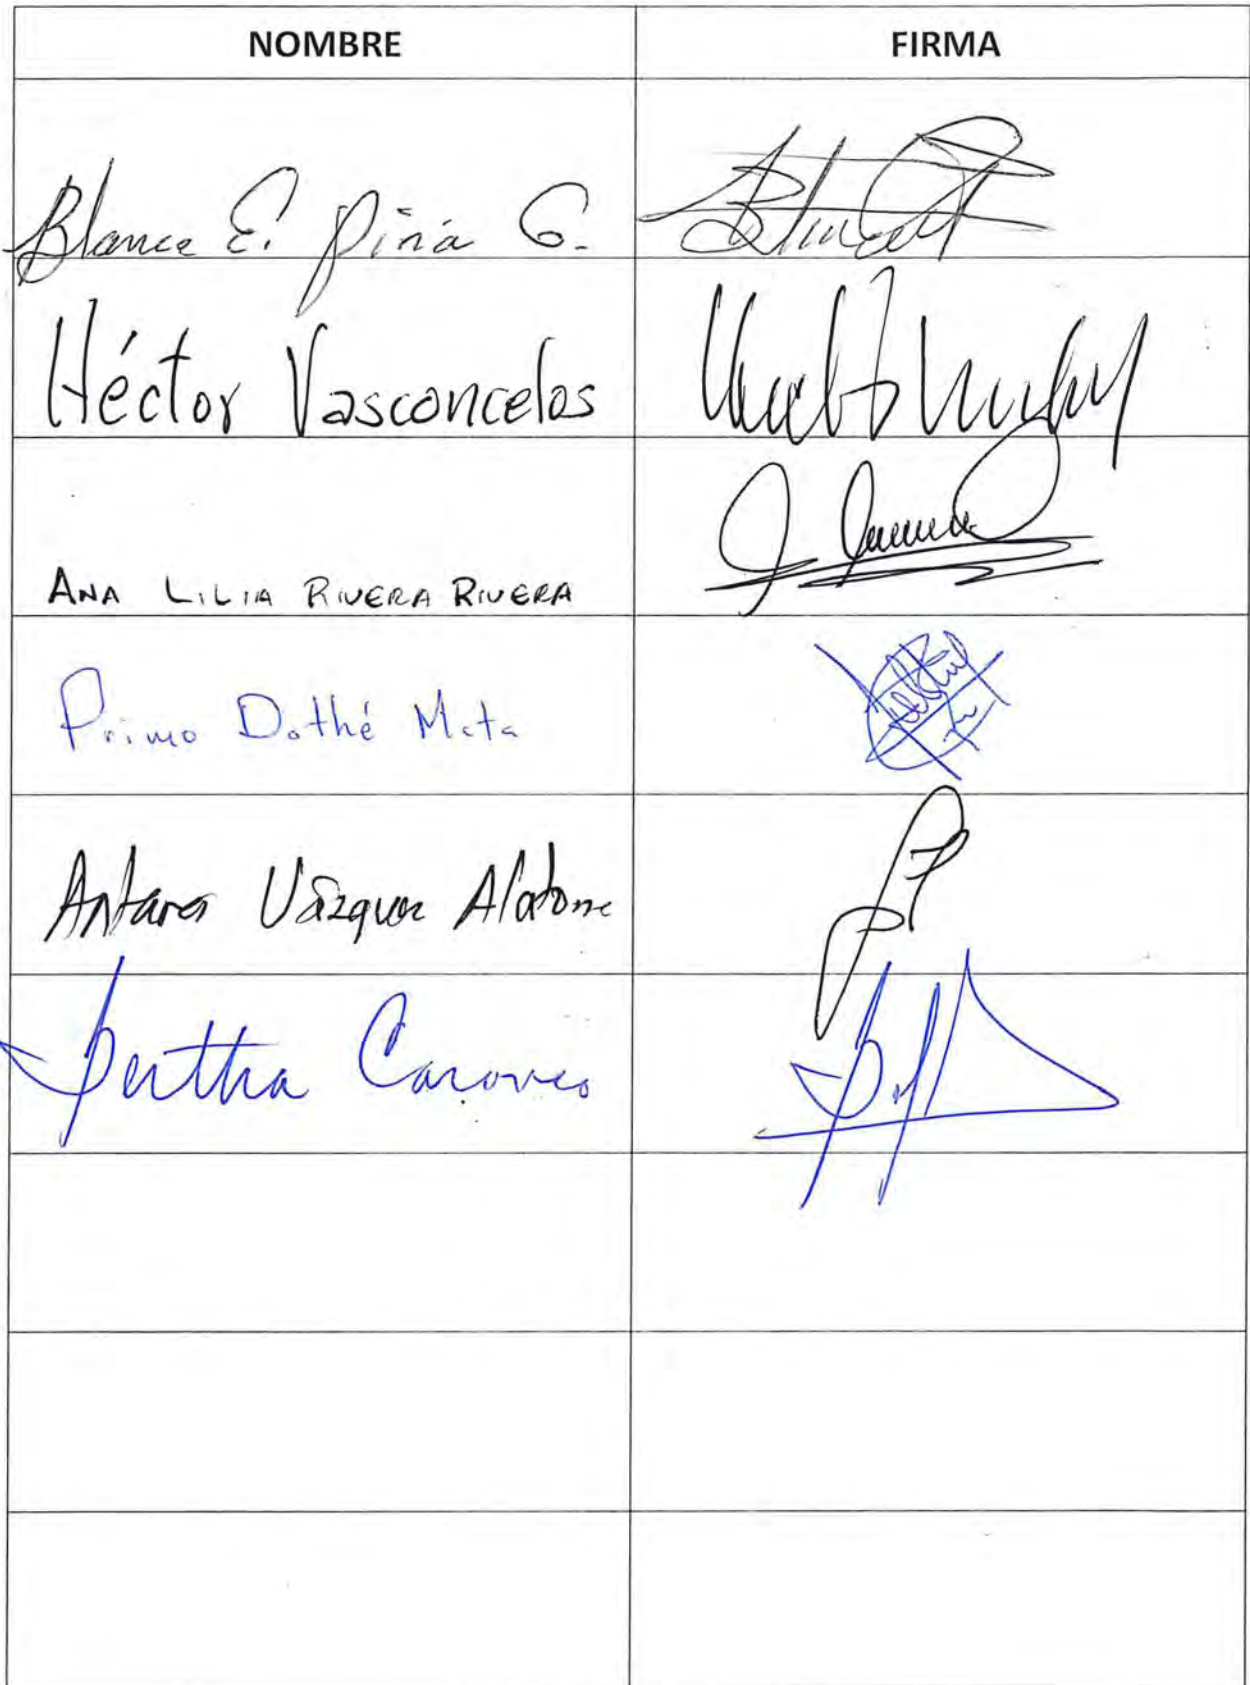 NOMBRE FIRMA
Blanca E. Piña G.
Héctor Vasconcelos
ANA LILIA RIVERA RIVERA
Primo Dothé Mata
Antares Vázquez Alatorre
Bertha Caraveo